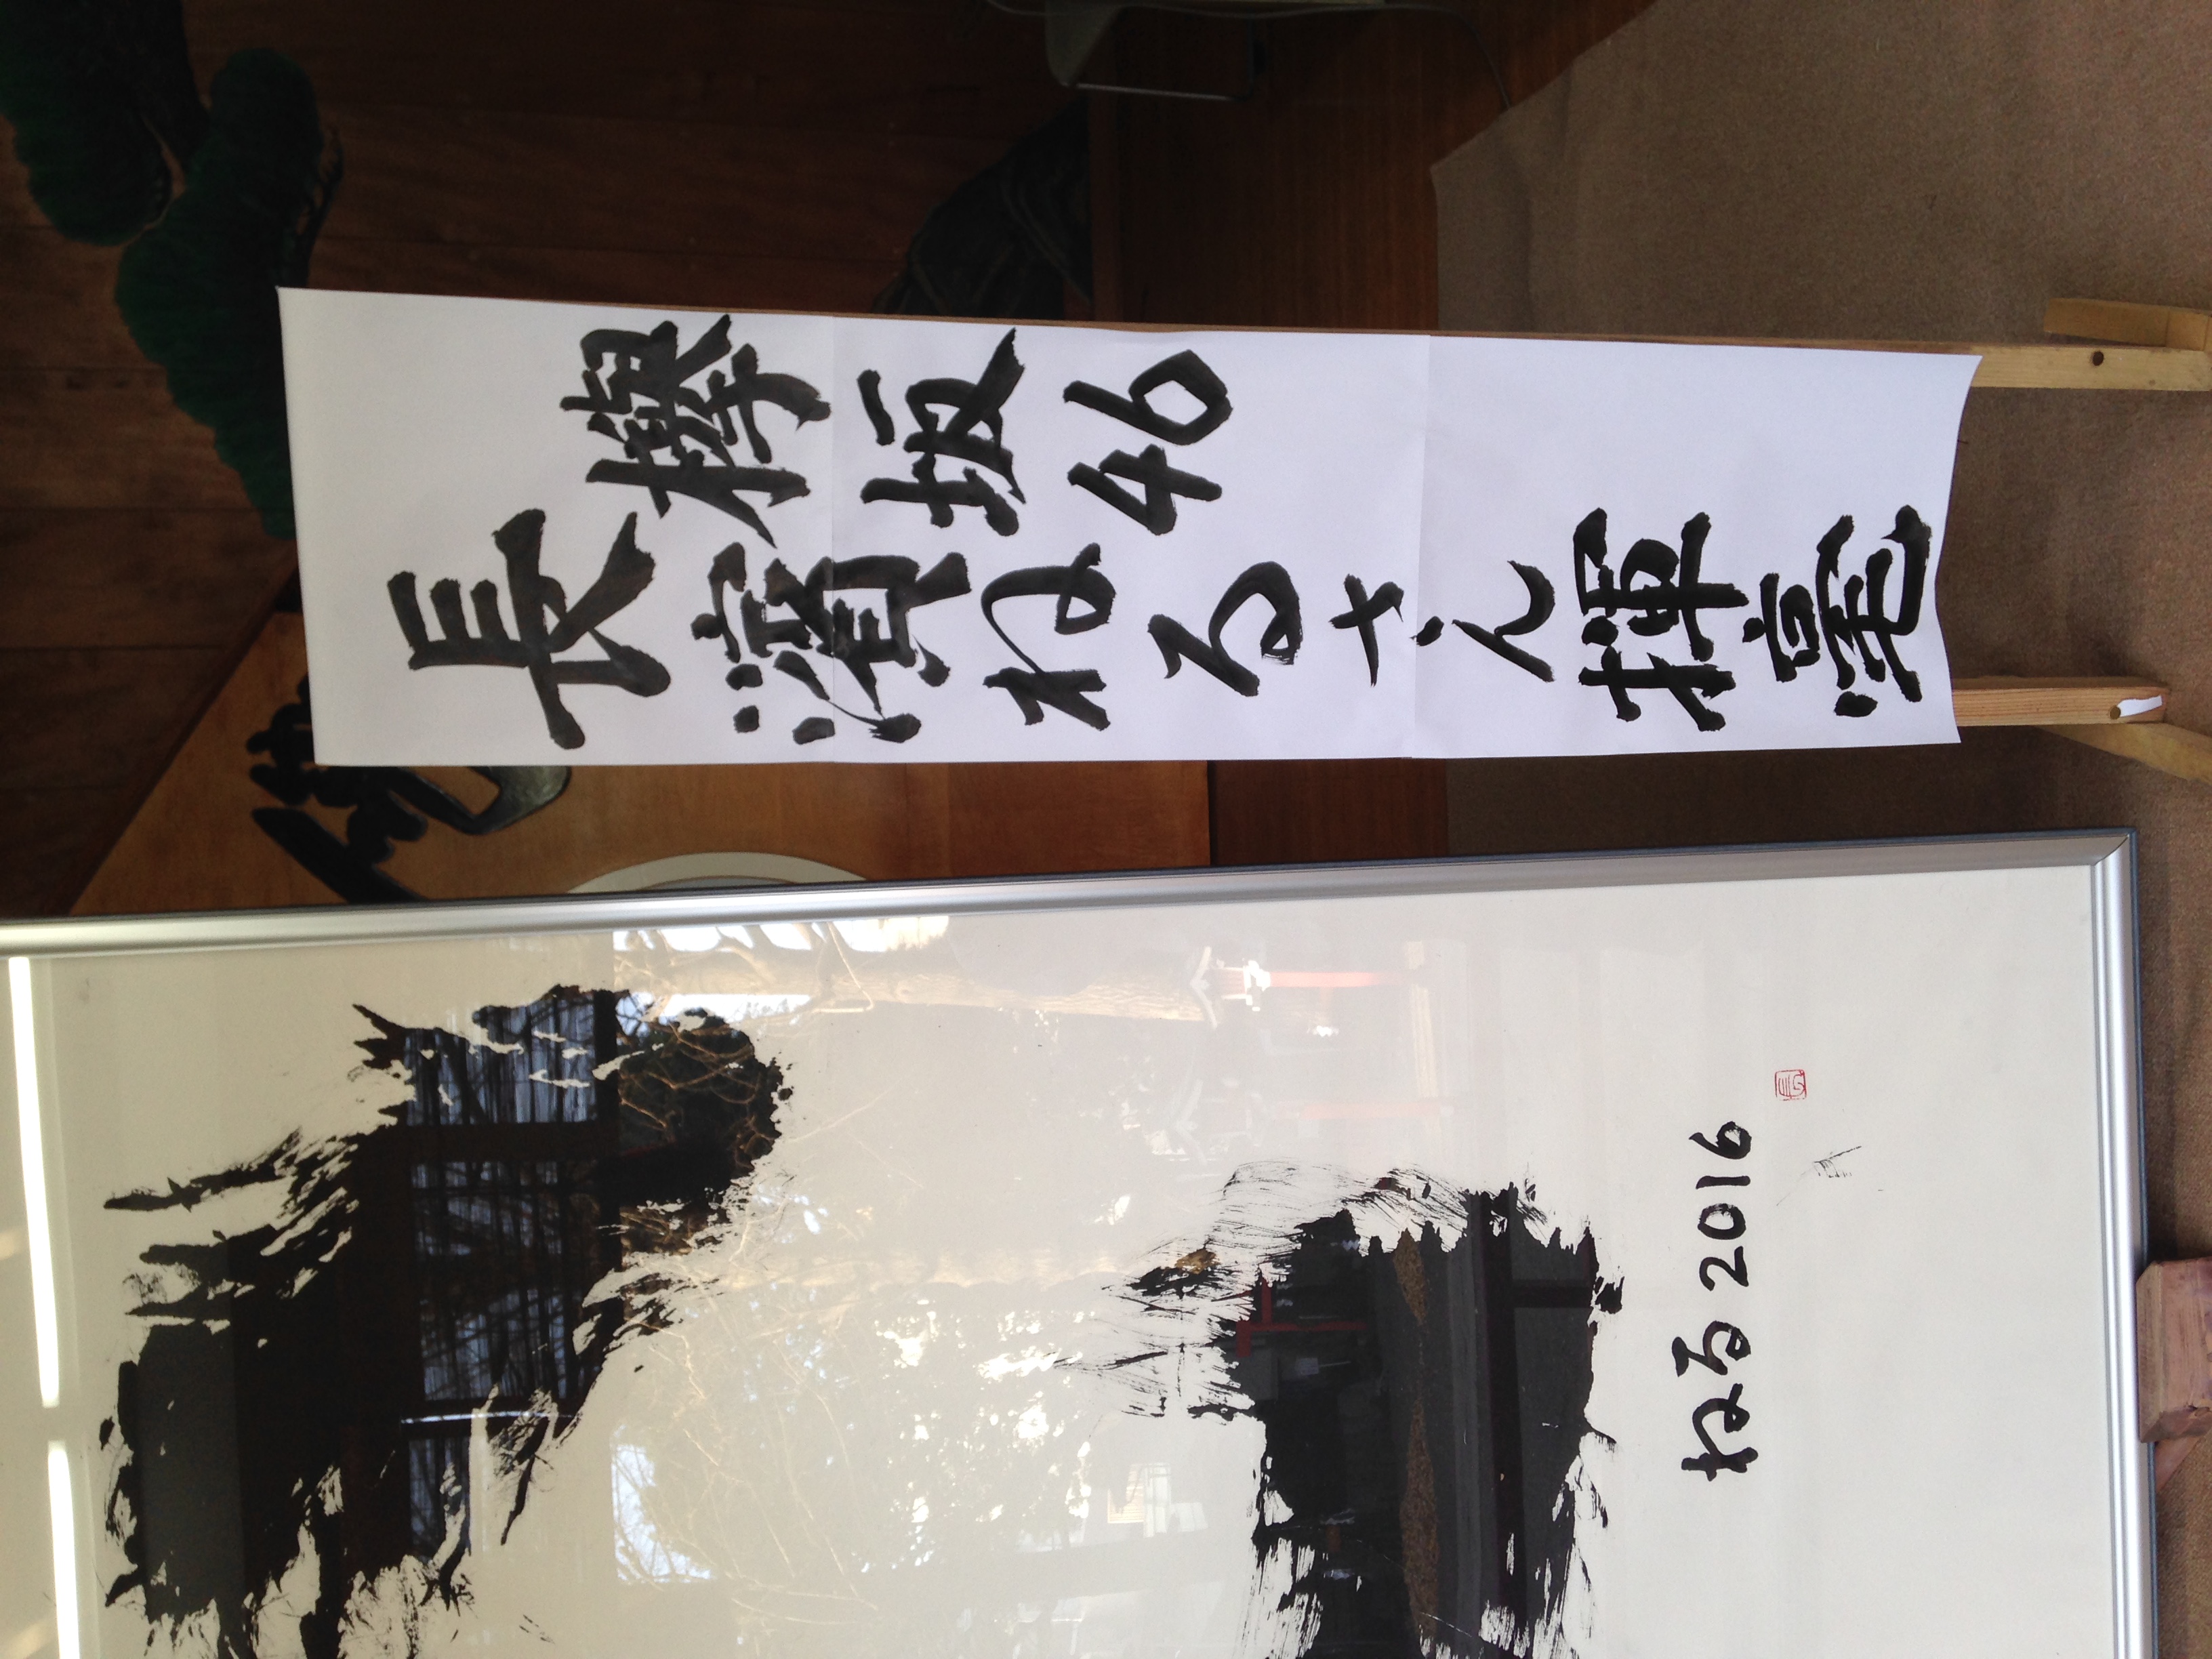 欅坂46
長濱ねるさん揮毫
ねる 2016